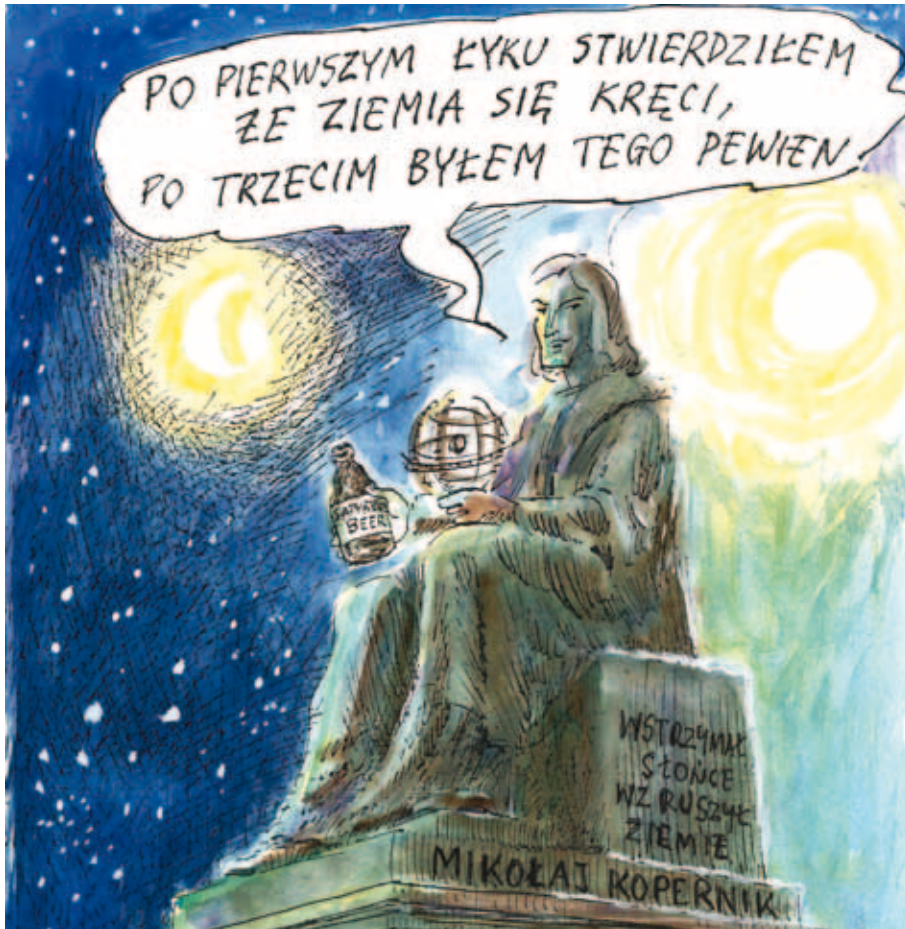 PO PIERWSZYM ŁYKU STWIERDZIŁEM
ŻE ZIEMIA SIĘ KRĘCI,
PO TRZECIM BYŁEM TEGO PEWIEN
BEER
WSTRZYMAŁ
SŁOŃCE
WZRUSZYŁ
ZIEMIĘ
MIKOŁAJ KOPERNIK